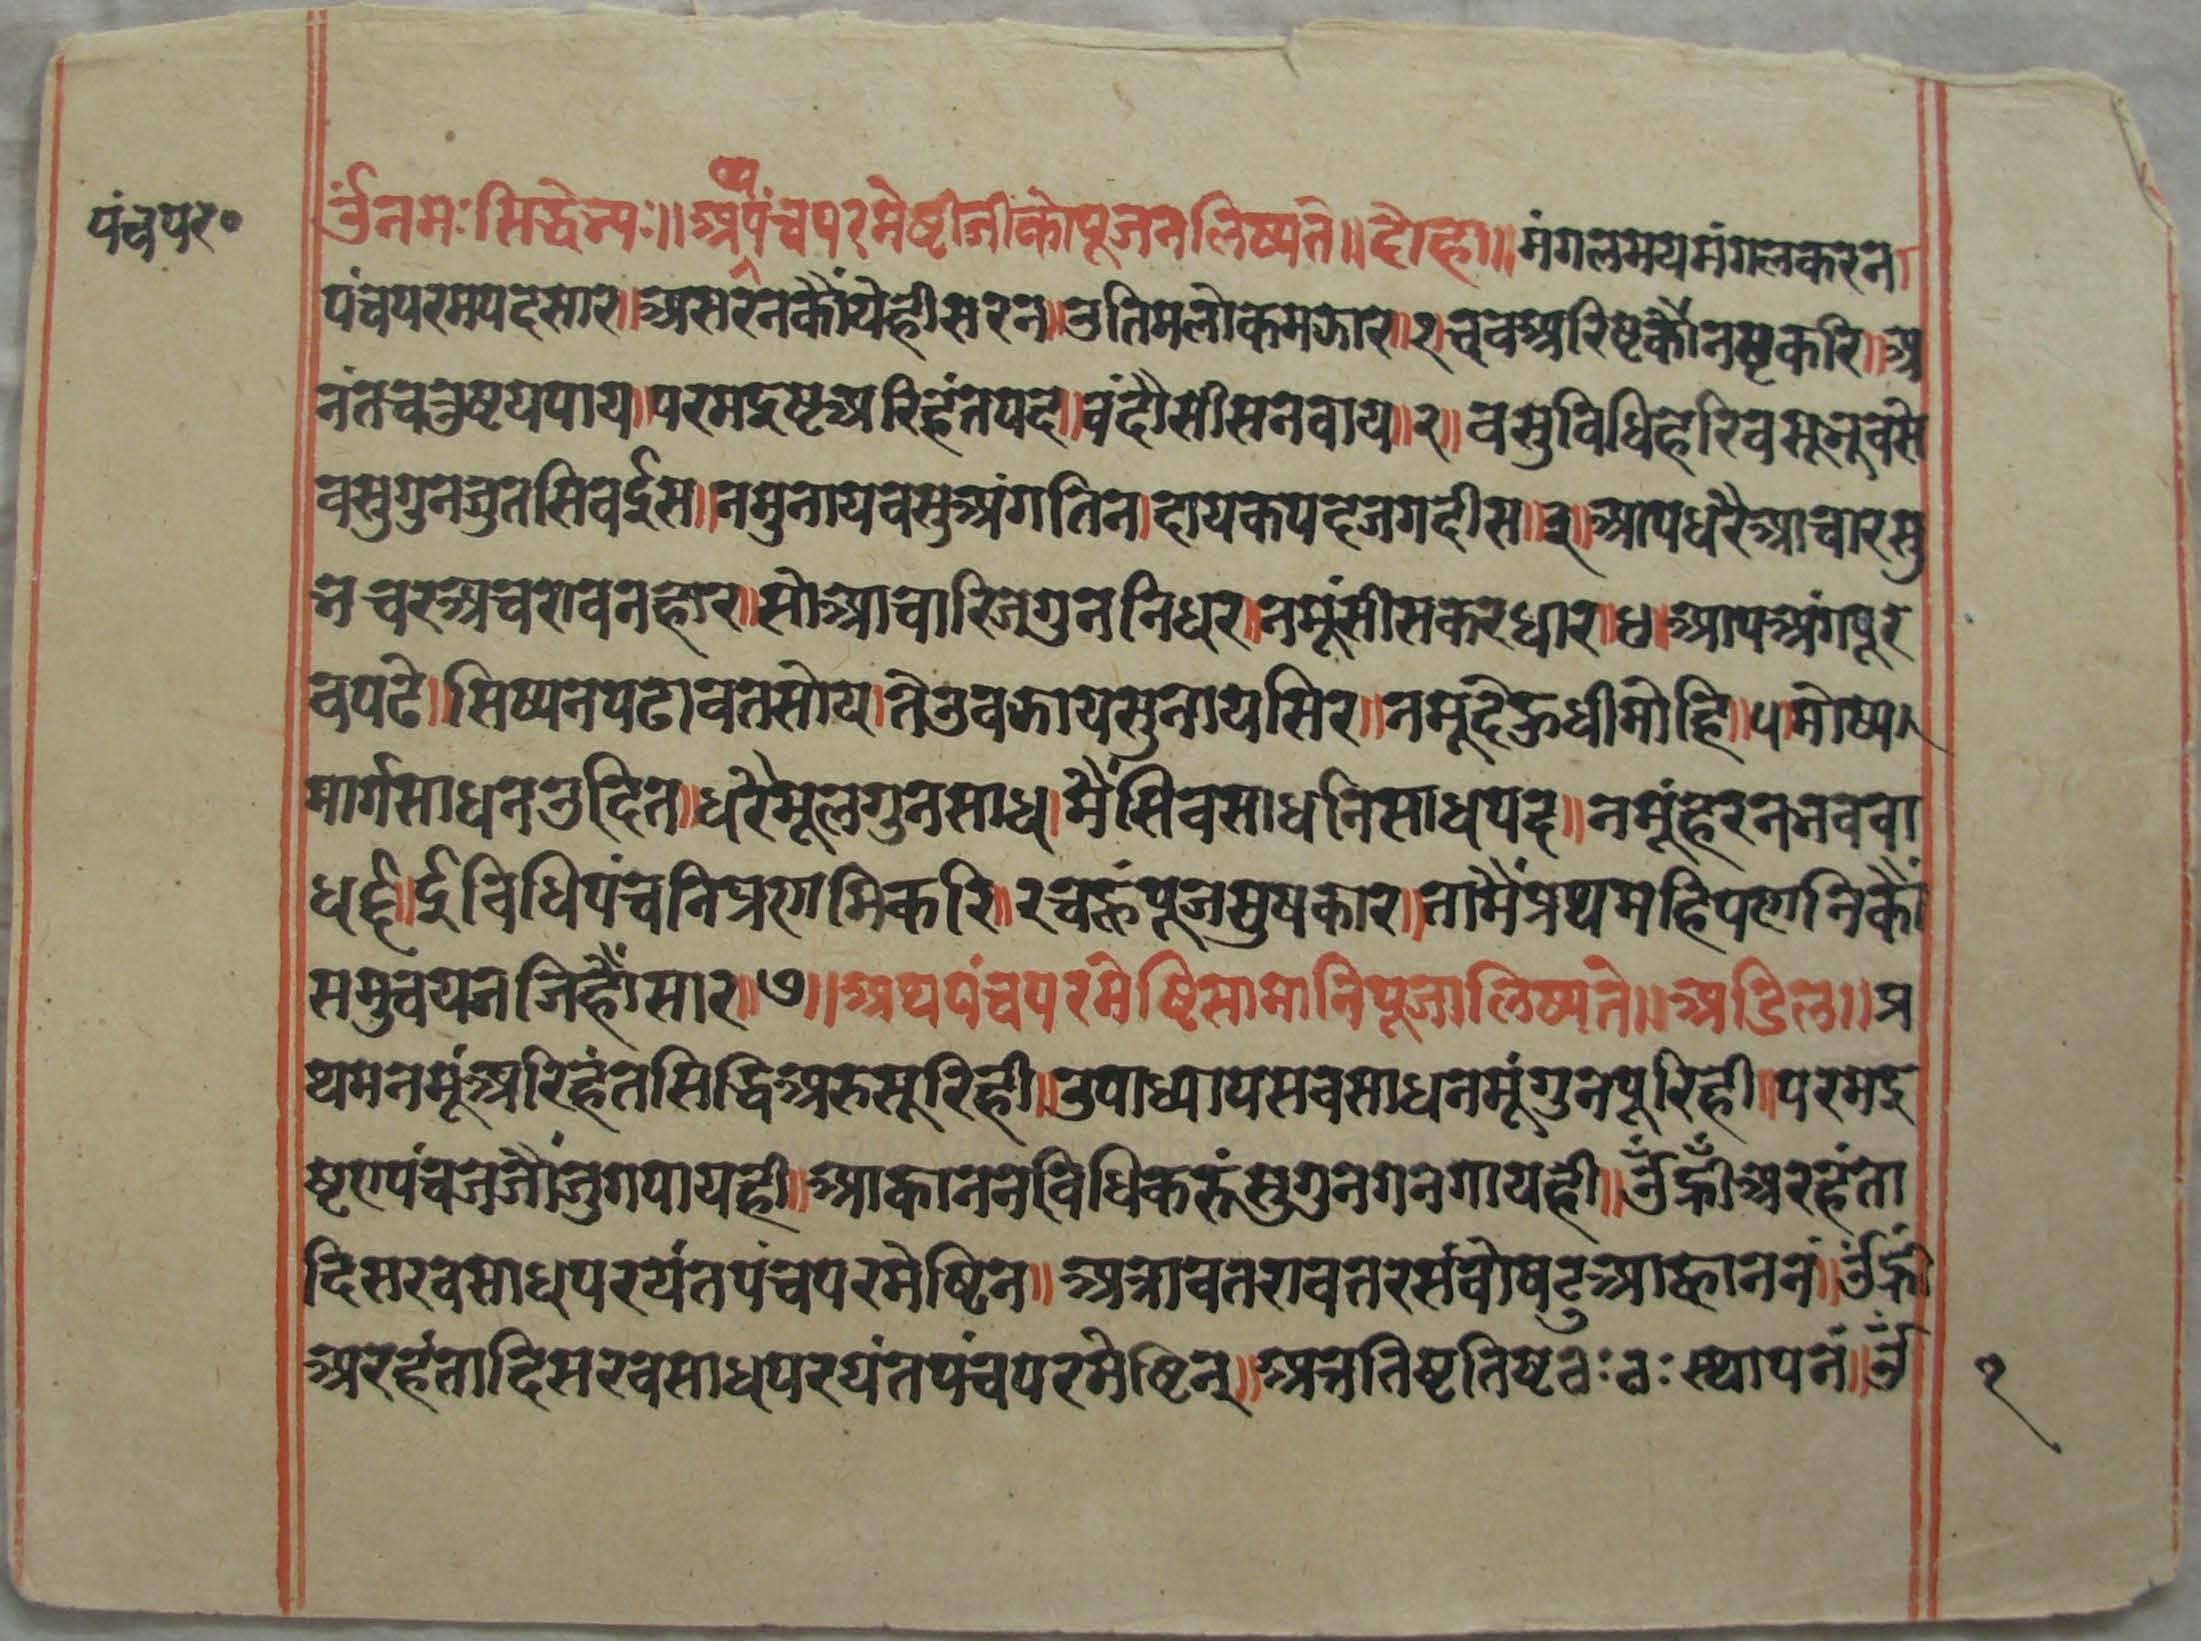 पंचपर०
ॐनमःसिद्धेभ्यः॥अथपंचपरमेष्टीजीकोपूजनलिष्यते॥दोहा॥मंगलमयमंगलकरन।
पंचपरमपदसार॥असरनकौंयेहीसरन॥उतिमलोकमझार॥१॥चवअरिष्टकौंनष्टकरि॥अ
नंतचतुष्टयपाय॥परमइष्टअरिहंतपद॥वंदौसीसनवाय॥२॥वसुविधिहरिवसूभूवसे
वसुगुनजुतसिवईस॥नमुनायवसुअंगतिन।दायकपदजगदीस॥३॥आपधरैआचारसु
नचरअचरावनहार॥सोआचारिजगुननिधर॥नमूंसीसकरधार॥४॥आपअंगपूर
वपढे॥सिष्यनपढावतसोय।तेउवझायसुनायसिर॥नमूदेऊधीमोहि॥५॥मोष्य
मार्गसाधनउदित॥धरैमूलगुनसाध।मैंसिवसाधनिसाधपद॥नमूंहरनभववा
ध॥६॥ईविधिपंचनिप्रणमिकरि॥रचहूंपूजसुषकार॥तामैंप्रथमहिपणनिकौं
समुचयनजिहौंसार॥७॥अथपंचपरमेष्टिसामानिपूजालिष्यते॥अडिल॥प्र
थमनमूंअरिहंतसिद्धिअरुसूरिही॥उपाध्यायसवसाधनमूंगुनपूरिही॥परमइ
ष्टएपंचजजौंजुगपायही॥आकाननविधिकरूंसुगुनगनगायही॥ॐह्रीँअरहंता
दिसरवसाधपरयंतपंचपरमेष्टिन॥अत्रावतरावतरसंवौषट्आह्वाननं॥ॐह्रीं
अरहंतादिसरवसाधपरयंतपंचपरमेष्टिन्॥अत्रतिष्टतिष्टठःठःस्थापनं॥ॐ
१